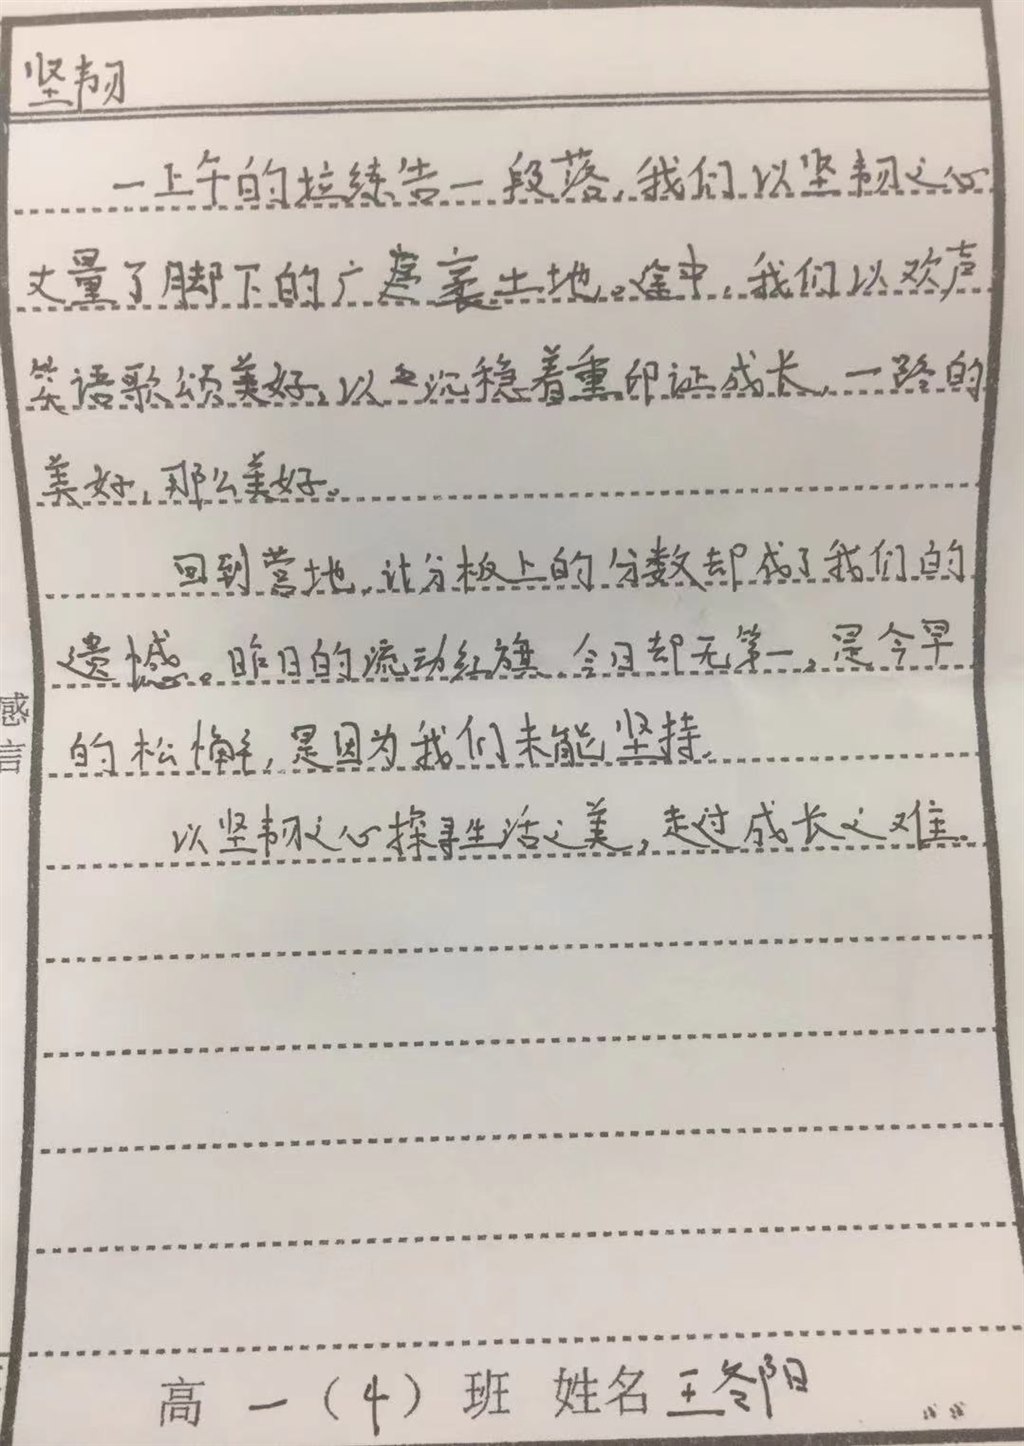 坚韧
一上午的拉练告一段落,我们以坚韧之心
丈量了脚下的广袤土地。途中,我们以欢声
笑语歌颂美好,以沉稳着重印证成长,一路的
美好,那么美好。
回到营地,计分板上的分数却成了我们的
遗憾。昨日的流动红旗,今日却无第一,是今早
的松懈,是因为我们未能坚持。
以坚韧之心探寻生活之美,走过成长之难。
感言
高一(4)班 姓名 王冬阳